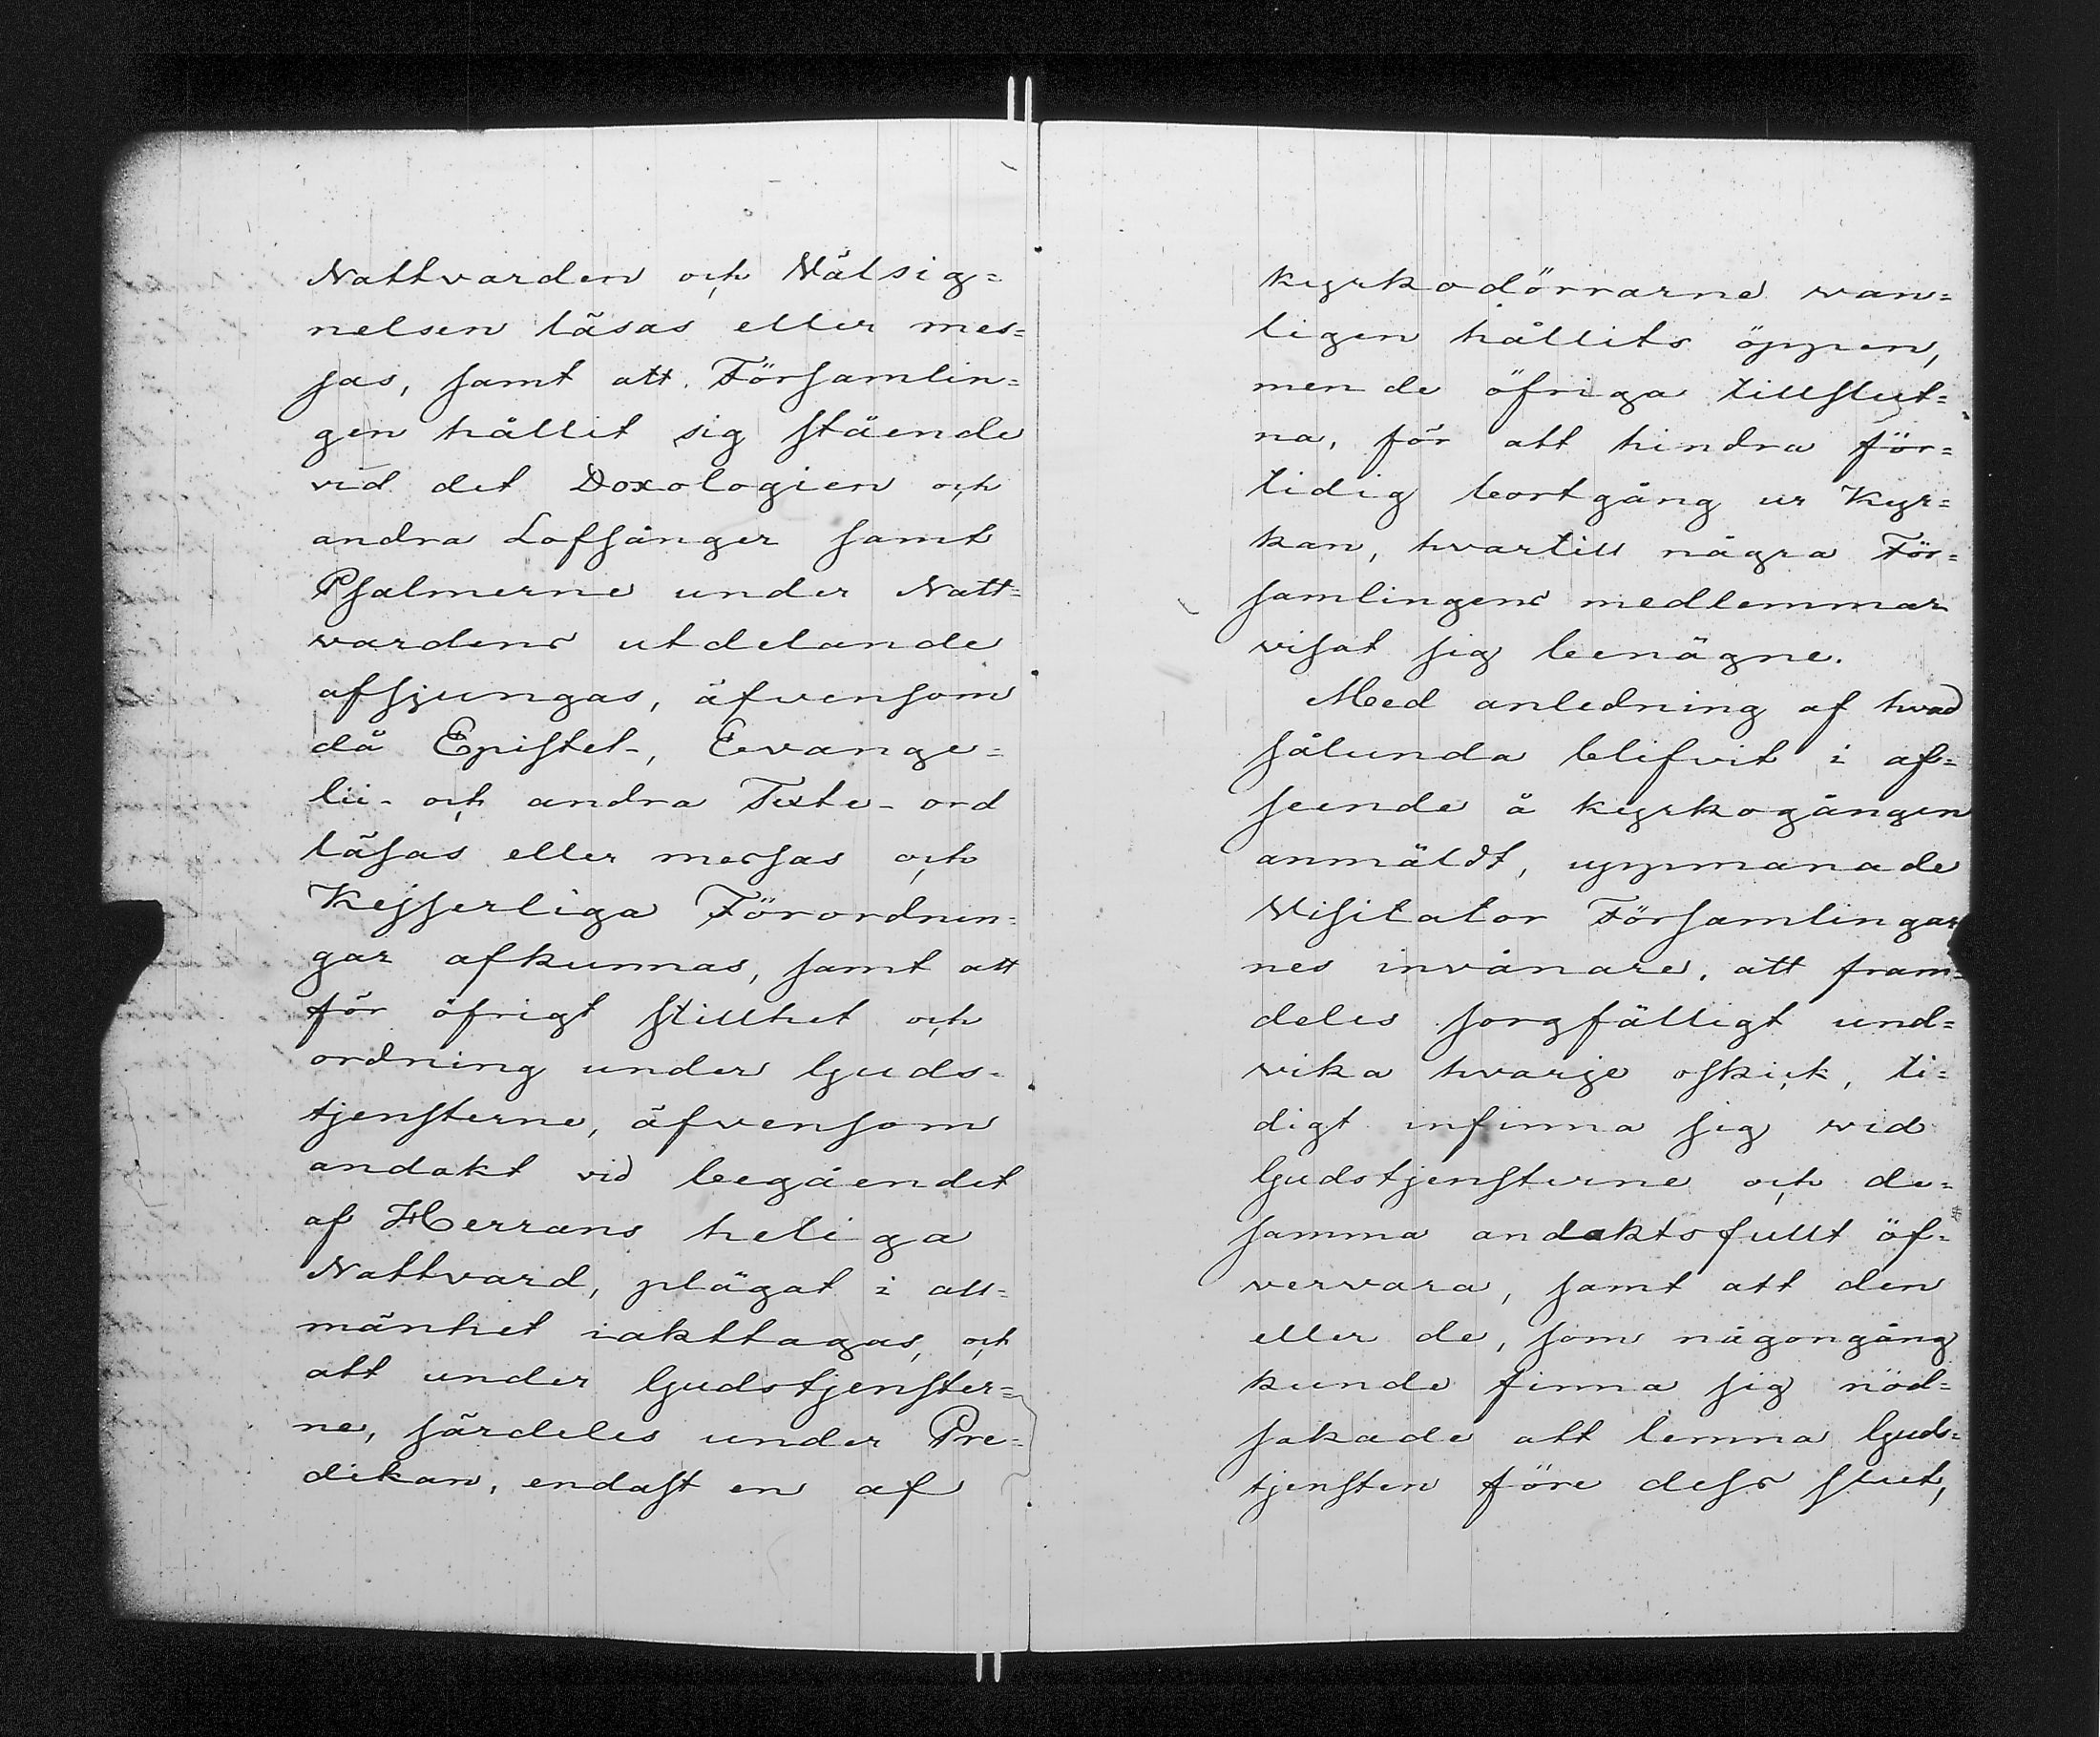 Nattvarden och Välsig=
nelsen läsas eller mes=
sas, samt att Församlin=
gen hållit sig stående
vid det Doxologien och
andra Lofsånger samt
Psalmerne under Natt=
vardens utdelande
afsjungas, äfvensom
då Epistel-, Evange-
lii- och andra Texte-ord
läsas eller messas och
Kejserliga Förordnin-
gar afkunnas, samt att
för öfrigt stillhet och
ordning under Guds-
tjensterne, äfvensom
andakt vid begåendet
af Herrans heliga
Nattvard, plägat i all-
mänhet iakttagas, och
att under Gudstjenster=
ne, särdeles under Pre-
dikan, endast en af
kyrkodörrarne van=
ligen hållits öppen,
men de öfriga tillslut=
na, för att hindra för=
tidig bortgång ur Kyr=
kan, hvartill några För=
samlingens medlemmar
visat sig benägne.
Med anledning af hvad
sålunda blifvit i af=
seende å kyrkogången
anmäldt, uppmanade
Visitator Församlingar
nes invånare, att fram=
deles sorgfälligt und=
vika hvarje oskick, ti=
digt infinna sig vid
Gudstjensterne och de=
samma andaktsfullt öf=
vervara, samt att den
eller de, som någongång
kunde finna sig nöd=
sakade att lemna Guds=
tjensten före dess slut,